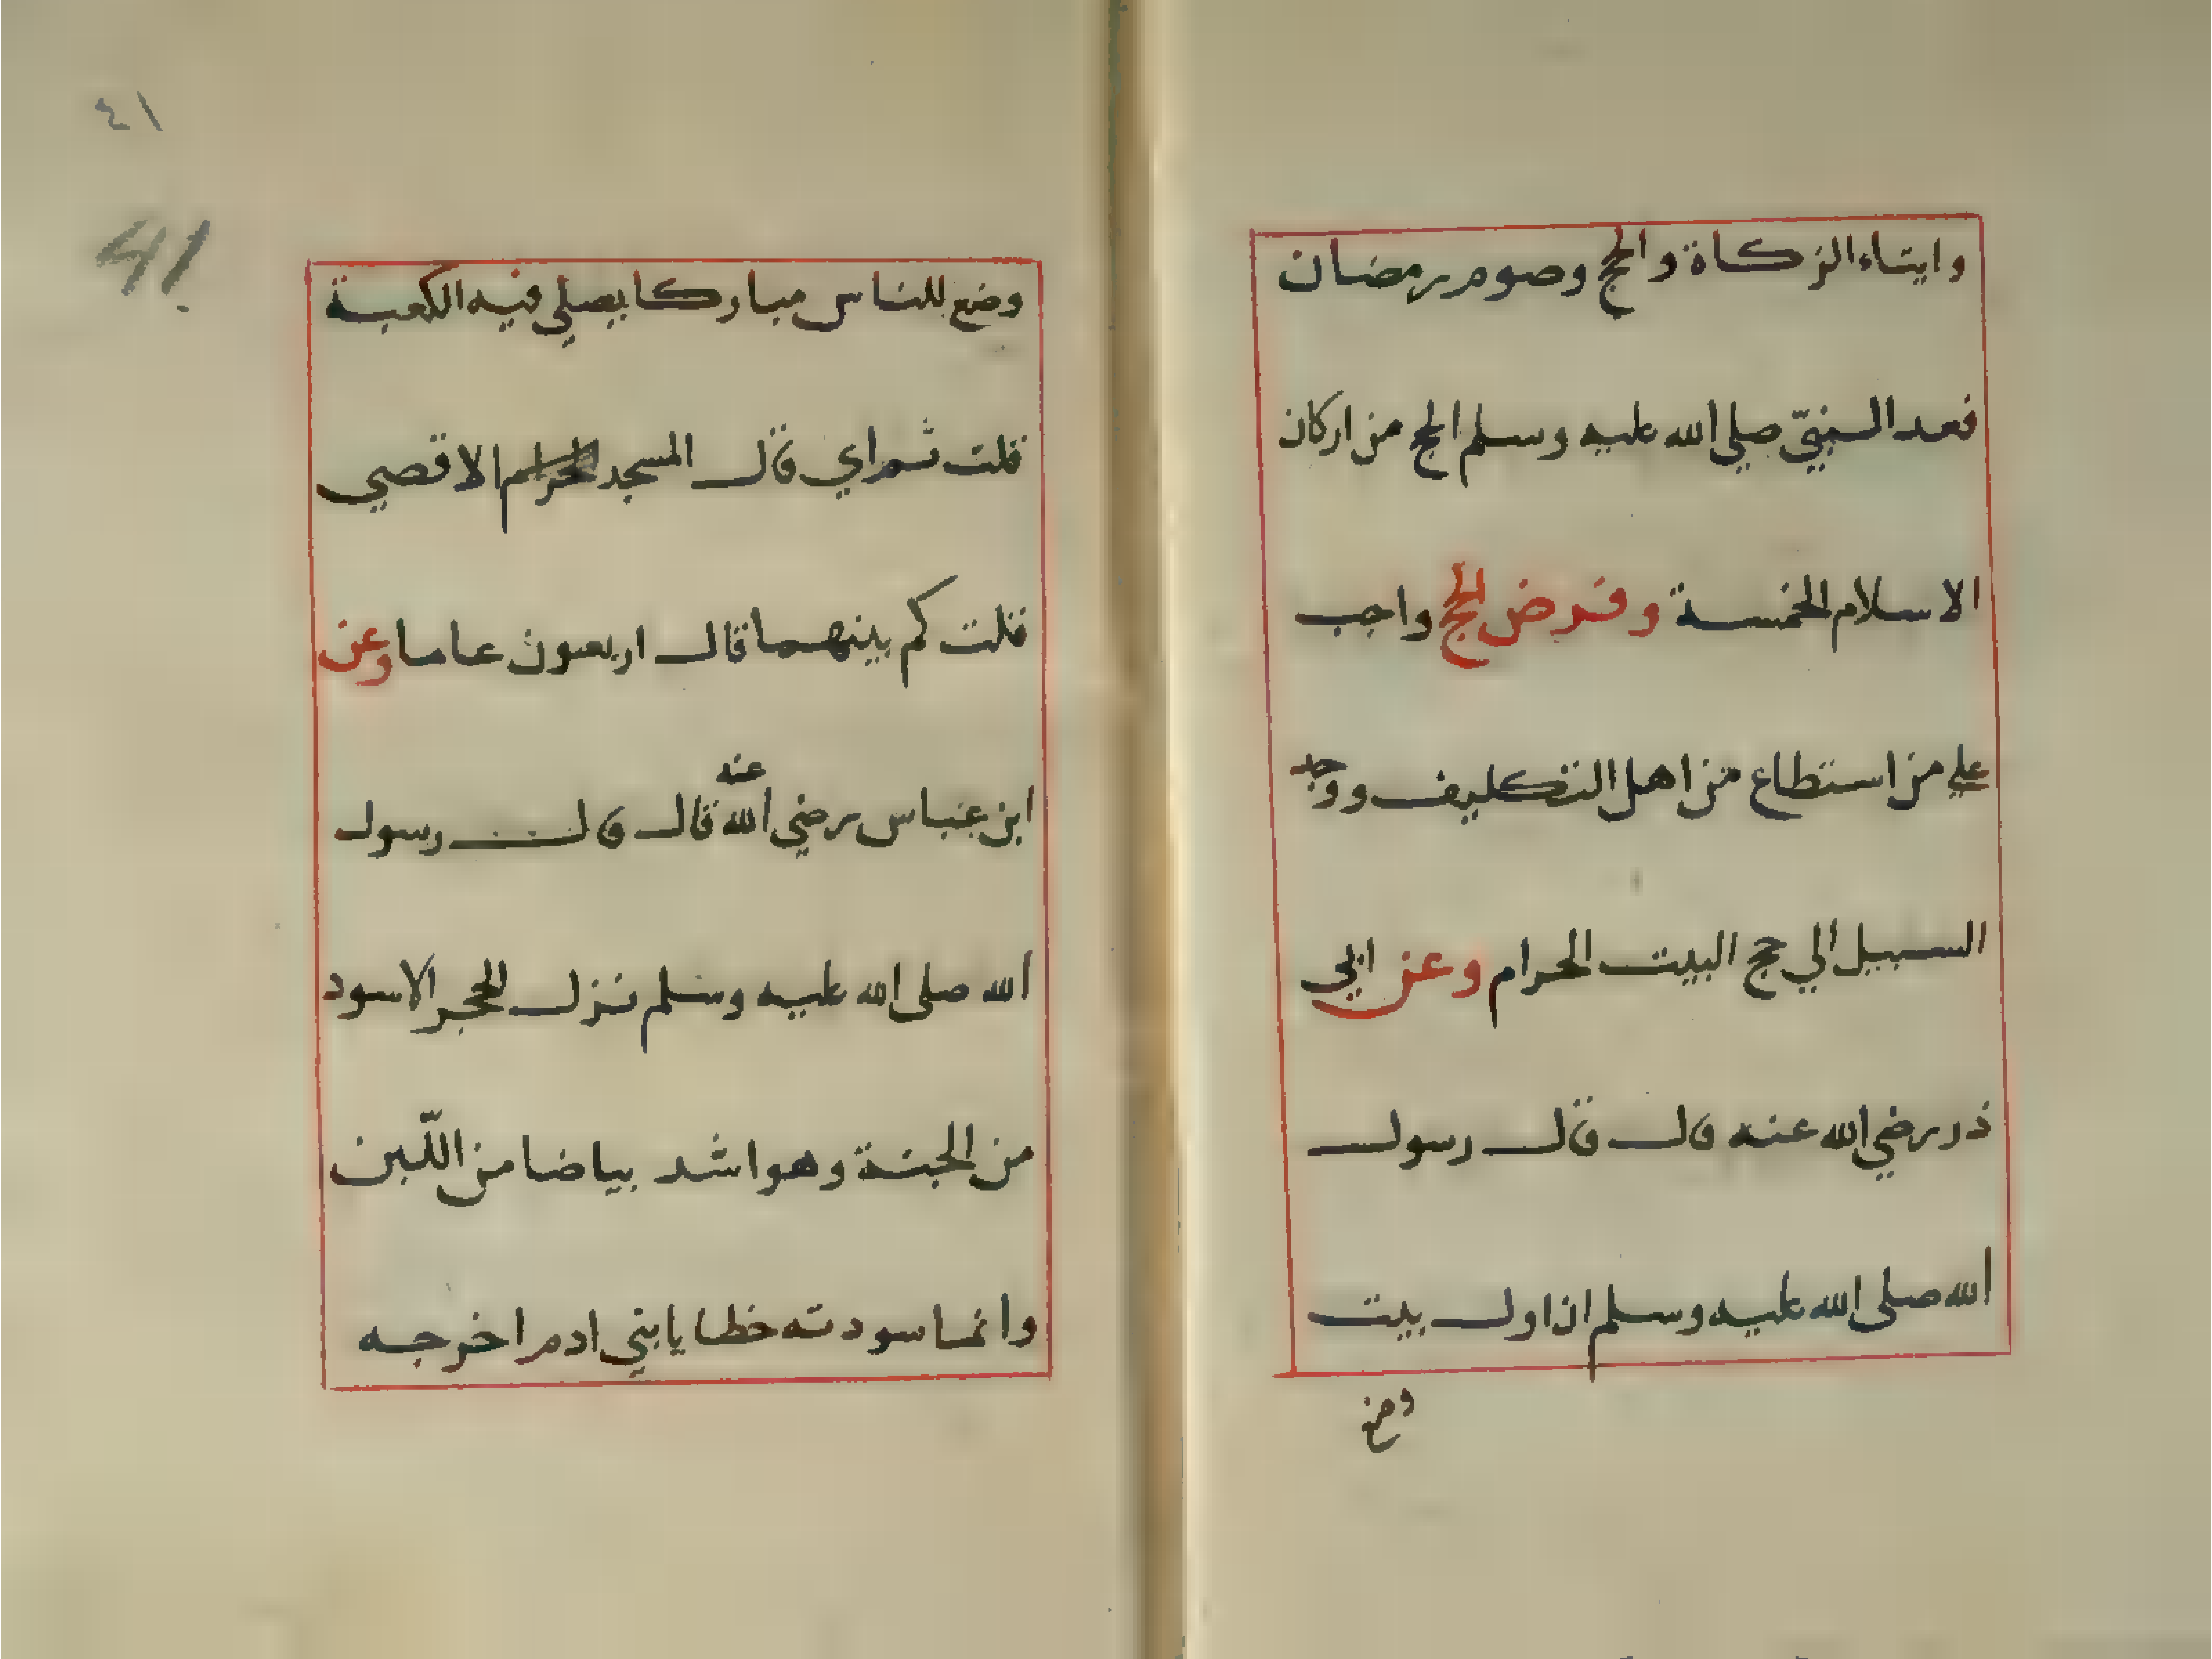 وايتاء الزكاة والحج وصوم رمضان
فعد النبيّ صلي الله عليه وسلم الحج من اركان
الاسلام الخمسة وفرض الحج واجب
علي من استطاع من اهل التكليف ووجد
السبيل الي حج البيت الحرام وعن ابي
ذر رضي الله عنه قال قال رسول
الله صلى الله عليه وسلم ان اول بيت
وضع
٤١
41.
وضع للناس مباركا يصلي فيه الكعبة
قلت ثم اي قال المسجد الحرام الاقصي
قلت كم بينهما قال اربعون عاما وعن
ابن عباس رضي الله عنه قال قال رسول
الله صلى الله عليه وسلم نزل الحجر الاسود
من الجنة وهو اشد بياضا من اللّبن
وانما سودته خطايا بني ادم اخرجه